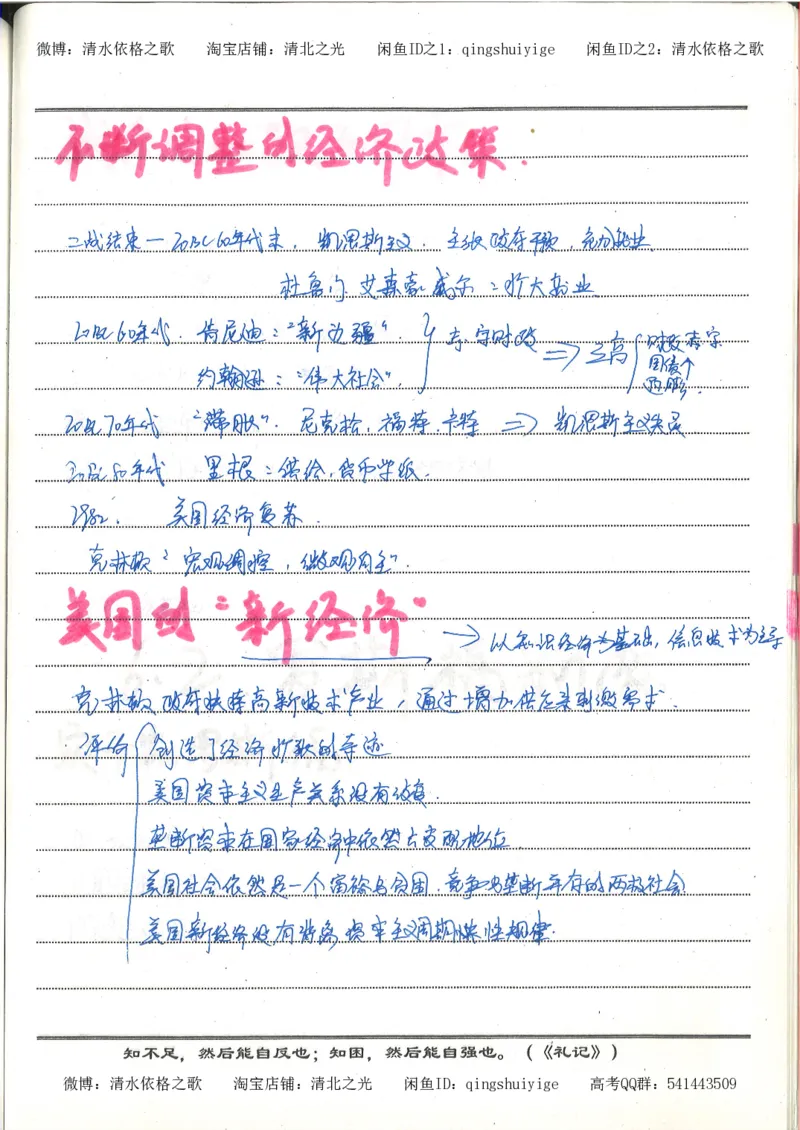 微博：清水依格之歌 淘宝店铺：清北之光 闲鱼ID之1：qingshuiyige 闲鱼ID之2：清水依格之歌
不断调整的经济政策.
二战结束—20BC60年代末，凯恩斯主义，主张政府干预，充分就业
杜鲁门、艾森豪威尔：扩大就业
20BC60年代．肯尼迪："新边疆"．
赤字财政 ⇒ 三高
财政赤字
国债个
通膨．
约翰逊："伟大社会"．
20BC70年代 "滞胀"．尼克松，福特，卡特 ⇒ 凯恩斯主义失灵
20BC80年代 里根：供给，货币学派．
1982． 美国经济复苏．
克林顿："宏观调控，微观自主"．
美国的"新经济" → 以知识经济为基础，信息技术为主导
克林顿政府扶持高新技术产业，通过增加供应来刺激需求．
评价 创造了经济扩张的奇迹
美国资本主义生产关系没有改变．
垄断资本在国家经济中依然占支配地位．
美国社会依然是一个富裕与贫困、竞争与垄断并存的两极社会
美国新经济没有脱离资本主义周期性规律．
知不足，然后能自反也；知困，然后能自强也。（《礼记》）
微博：清水依格之歌 淘宝店铺：清北之光 闲鱼ID：qingshuiyige 高考QQ群：541443509